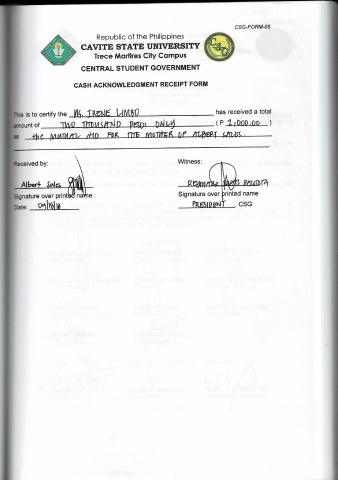 CSG-FORM-05
Republic of the Philippines
CAVITE STATE UNIVERSITY
Trece Martires City Campus
CENTRAL STUDENT GOVERNMENT
CASH ACKNOWLEDGMENT RECEIPT FORM
This is to certify the Ms. IRENE LIMBO has received a total
amount of TWO THOUSAND PESOS ONLY ( P 2,000.00 )
as the MUTUAL AID FOR THE MOTHER OF ALBERT SALES.
Received by: Witness:
Albert Sales
Signature over printed name Signature over printed name
Date: 09/18/18 PRESIDENT, CSG